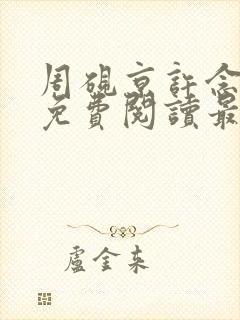 周硯京許念
免費閱讀最
盧金来